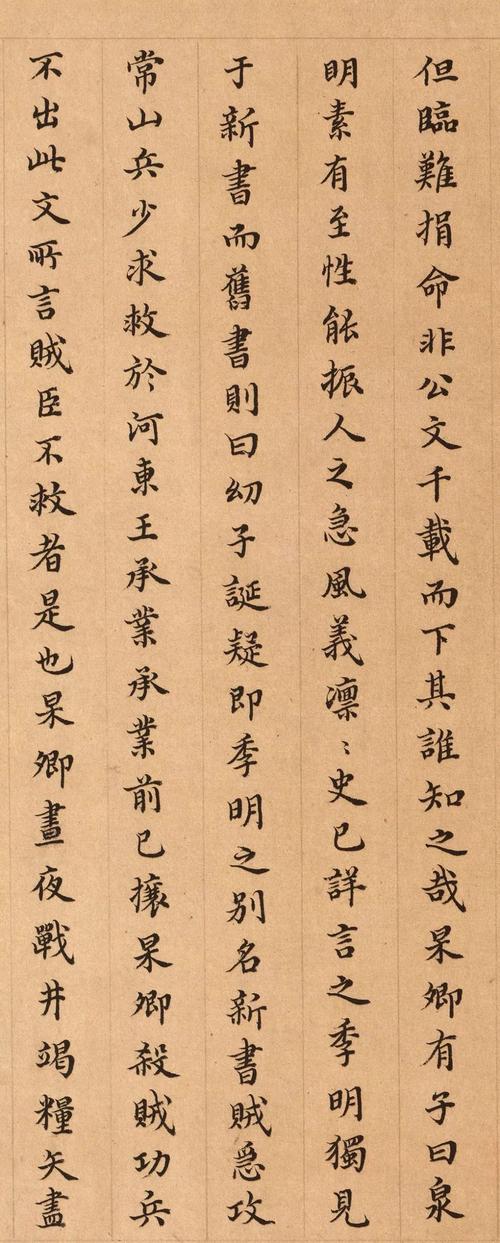 但臨難捐命非公文千載而下其誰知之哉杲卿有子曰泉
明素有至性能振人之急風義凛〻史已詳言之季明獨見
于新書而舊書則曰幼子誕疑即季明之别名新書賊急攻
常山兵少求救於河東王承業承業前已攘杲卿殺賊功兵
不出此文所言賊臣不救者是也杲卿晝夜戰井竭糧矢盡